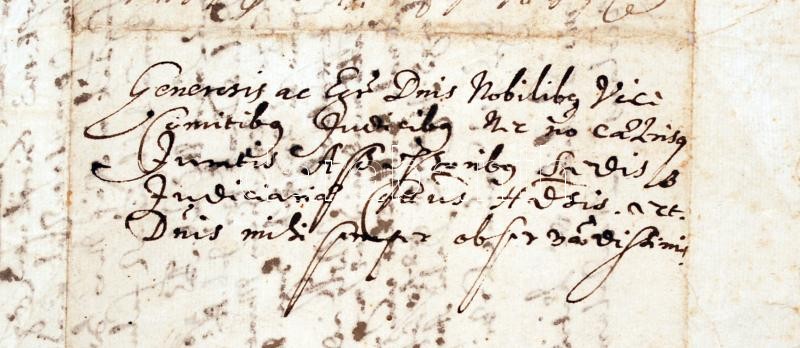 Generosis ac Egr Dnis Nobilibq Vice
Comitibq Judicibq Nec no
Juratis Assessoribq Sedis
Judiciariae Cottus
Dnis mihi semper observandissimis